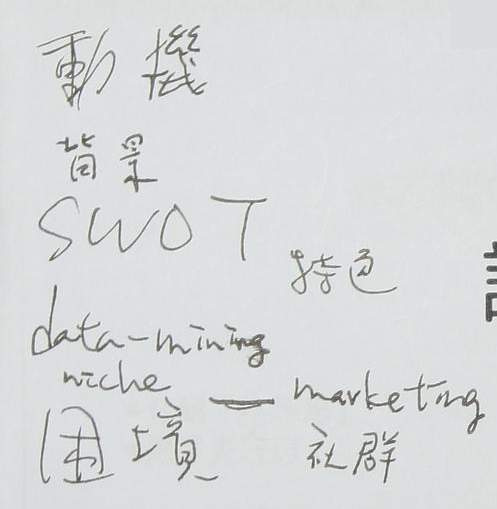 動機
背景
SWOT
特色
data-mining
niche — marketing
困境 社群